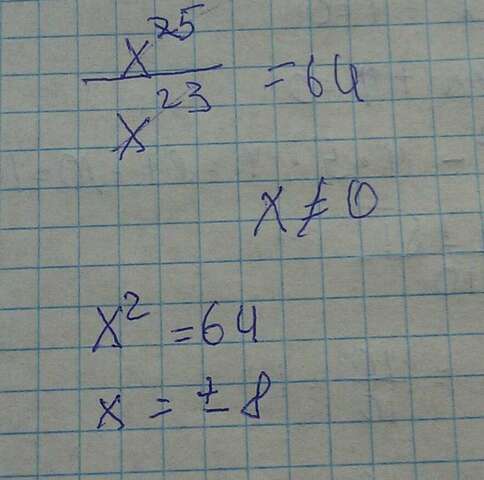 x²⁵
x²³ = 64
x ≠ 0
x² = 64
x = ± 8